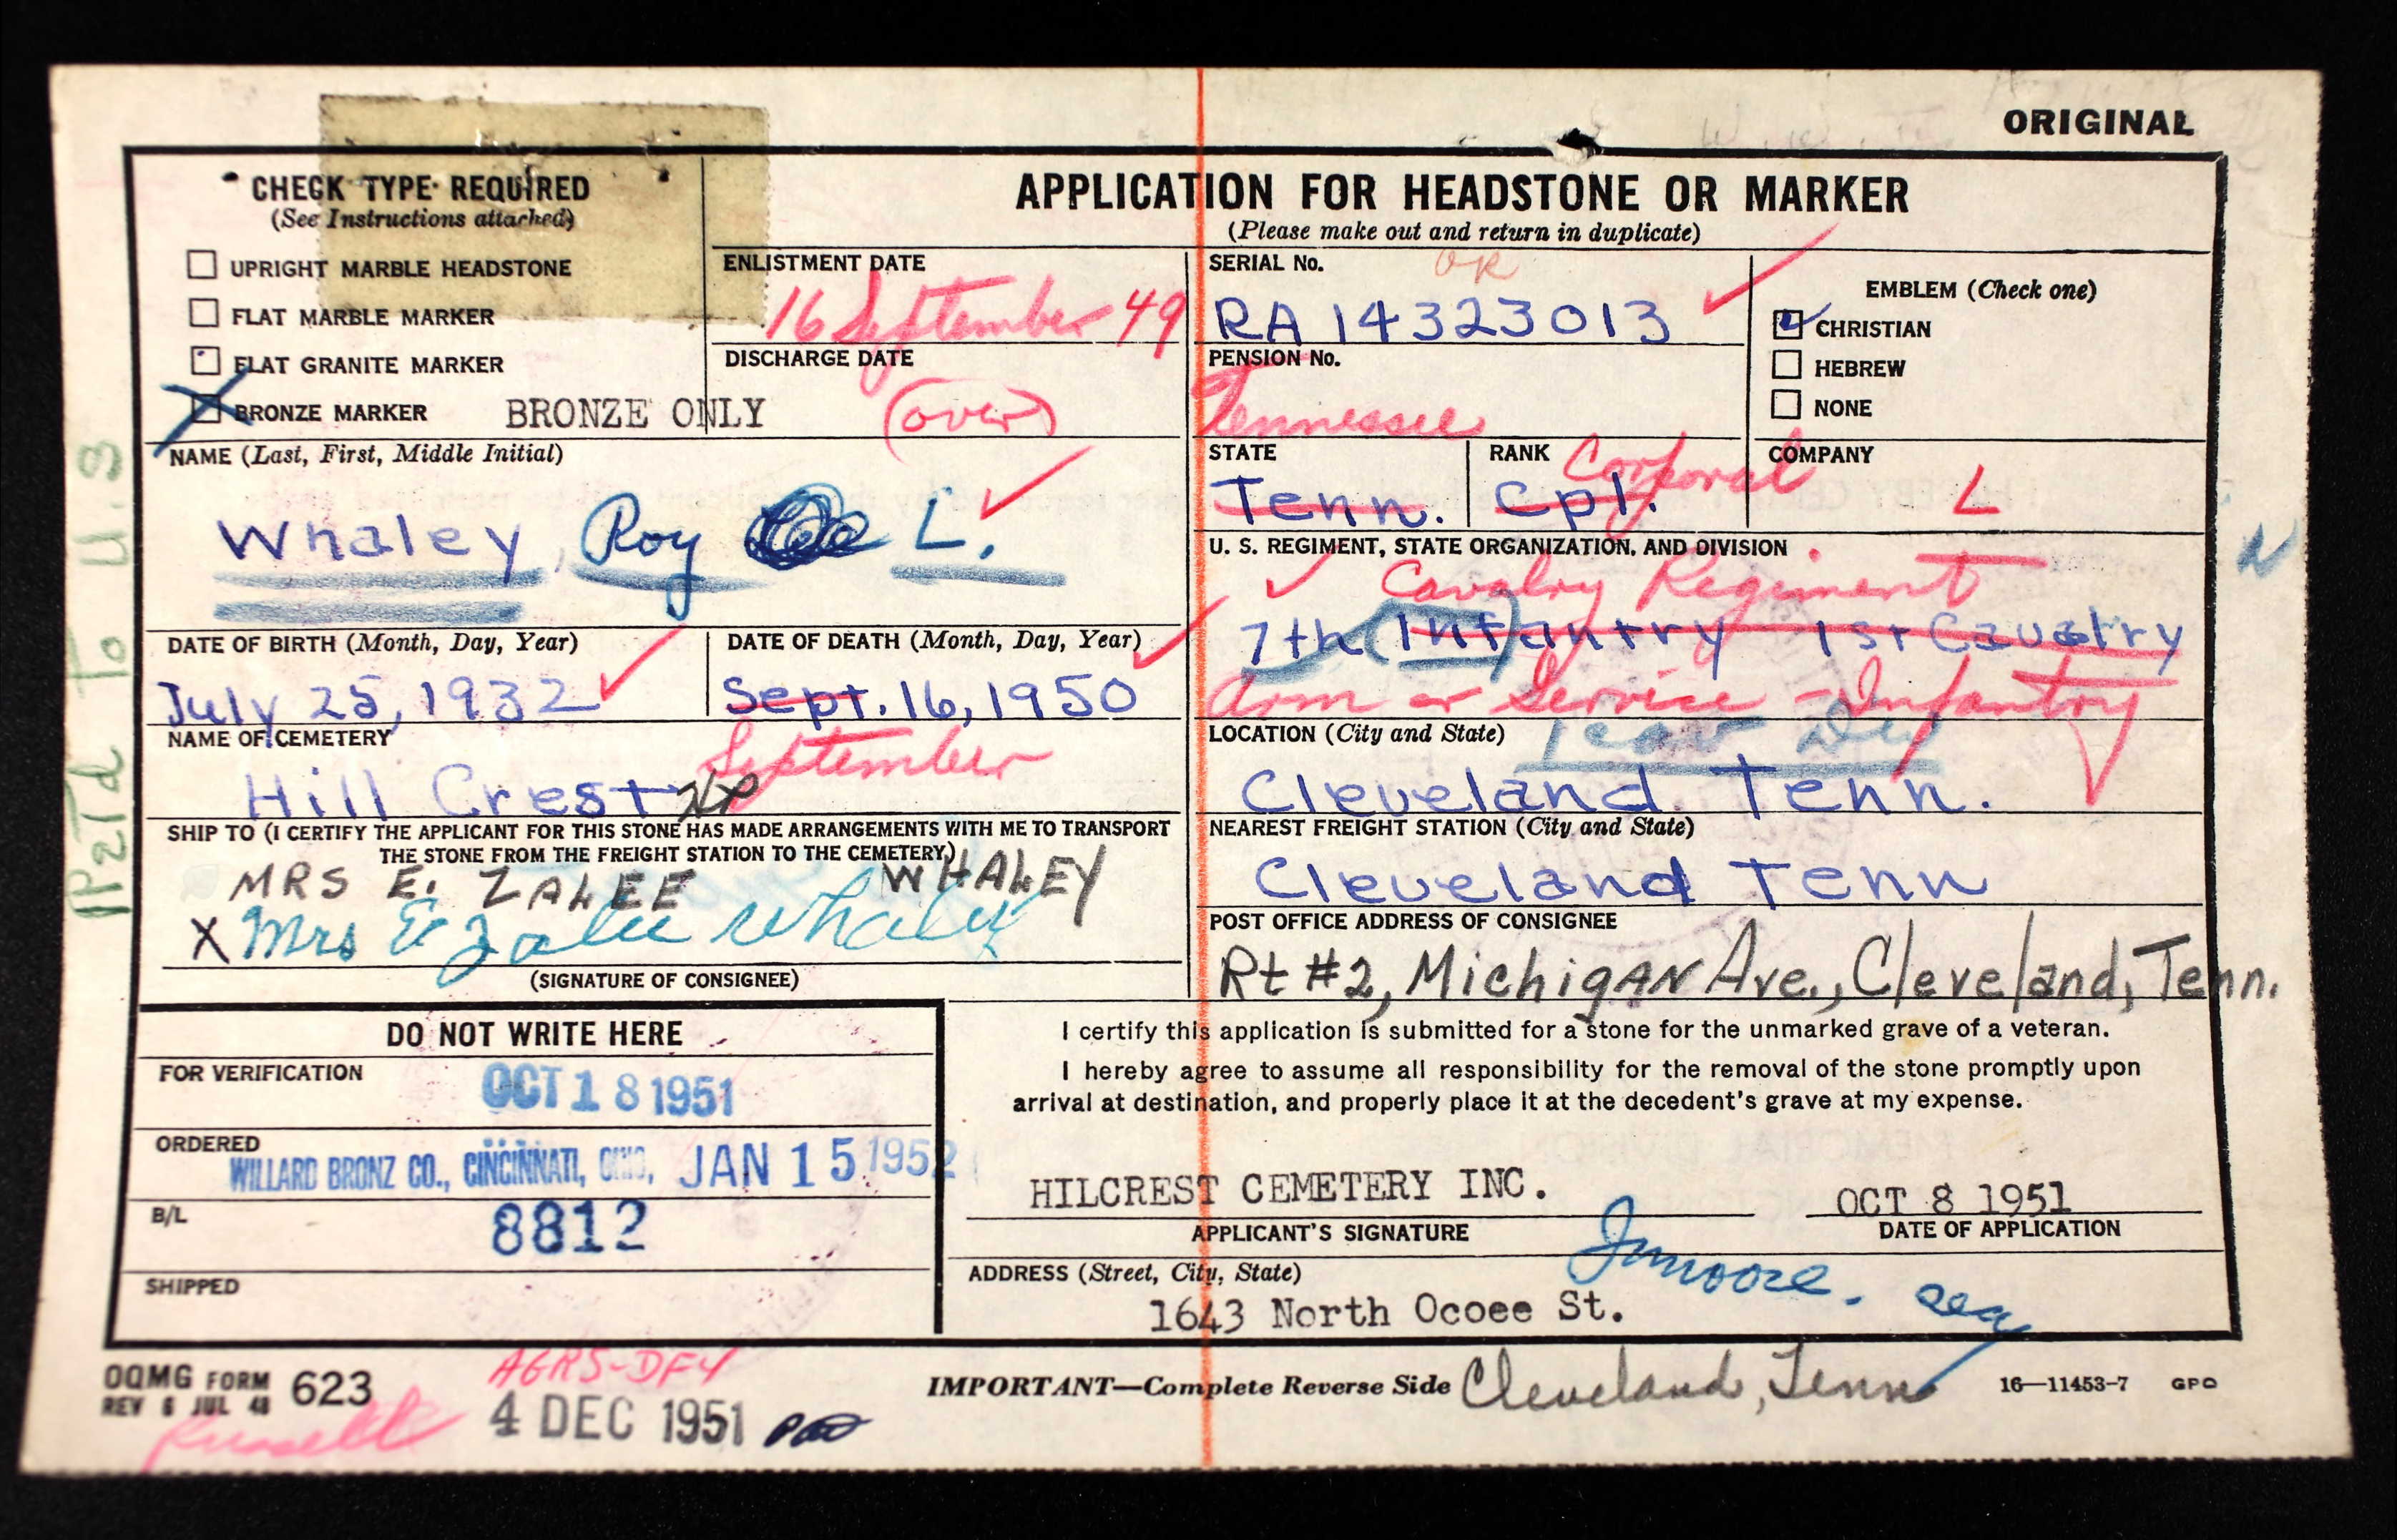 ORIGINAL
CHECK TYPE REQUIRED
(See Instructions attached)
UPRIGHT MARBLE HEADSTONE
FLAT MARBLE MARKER
FLAT GRANITE MARKER
BRONZE MARKER BRONZE ONLY
APPLICATION FOR HEADSTONE OR MARKER
(Please make out and return in duplicate)
ENLISTMENT DATE
16 September 49
DISCHARGE DATE
(over)
SERIAL No.
OK
RA 14323013
PENSION No.
Tennessee
EMBLEM (Check one)
CHRISTIAN
HEBREW
NONE
NAME (Last, First, Middle Initial)
Whaley, Roy L.
STATE
Tenn.
RANK Corporal
Cpl.
COMPANY
L
U. S. REGIMENT, STATE ORGANIZATION, AND DIVISION
Cavalry Regiment
7th (Inf)antry 1st Cavalry
Arm or Service - Infantry
DATE OF BIRTH (Month, Day, Year)
July 25, 1932
DATE OF DEATH (Month, Day, Year)
Sept. 16, 1950
September
NAME OF CEMETERY
Hill Crest NP
LOCATION (City and State) 1 Cav Div
Cleveland Tenn.
SHIP TO (I CERTIFY THE APPLICANT FOR THIS STONE HAS MADE ARRANGEMENTS WITH ME TO TRANSPORT
THE STONE FROM THE FREIGHT STATION TO THE CEMETERY)
MRS E. ZALEE WHALEY
X Mrs E Zalee Whaley
(SIGNATURE OF CONSIGNEE)
NEAREST FREIGHT STATION (City and State)
Cleveland Tenn
POST OFFICE ADDRESS OF CONSIGNEE
Rt #2, Michigan Ave., Cleveland, Tenn.
DO NOT WRITE HERE
FOR VERIFICATION
OCT 18 1951
ORDERED
WILLARD BRONZ CO., CINCINNATI, OHIO, JAN 15 1952
B/L
8812
SHIPPED
I certify this application is submitted for a stone for the unmarked grave of a veteran.
I hereby agree to assume all responsibility for the removal of the stone promptly upon
arrival at destination, and properly place it at the decedent's grave at my expense.
HILCREST CEMETERY INC.
OCT 8 1951
APPLICANT'S SIGNATURE
DATE OF APPLICATION
ADDRESS (Street, City, State)
JMMoore. Secy
1643 North Ocoee St.
OQMG FORM 623
REV 6 JUL 48
Russell
AGRS-DF4
4 DEC 1951
IMPORTANT—Complete Reverse Side
Cleveland, Tenn
16—11453-7 GPO